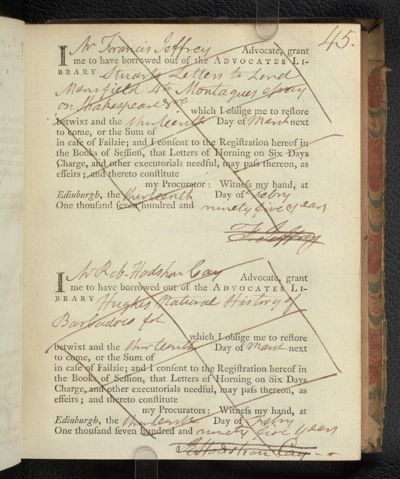 45.
I Mr Francis Jeffrey Advocate, grant
me to have borrowed out of the ADVOCATES LI-
BRARY Stuarts Letters to Lord
Mansfield 4to Montagues essay
on Shakespear 8vo which I oblige me to reſtore
betwixt and the thirteenth Day of March next
to come, or the Sum of
in caſe of Failzie; and I conſent to the Regiſtration hereof in
the Books of Seſſion, that Letters of Horning on Six Days
Charge, and other executorials needful, may paſs thereon, as
effeirs; and thereto conſtitute
my Procurator: Witneſs my hand, at
Edinburgh, the thirteenth Day of Febry
One thouſand ſeven hundred and ninety five years
F. Jeffrey
I Mr Rob. Hodshon Cay Advocate, grant
me to have borrowed out of the ADVOCATES LI-
BRARY Hughes Natural History of
Barbadoes fol
which I oblige me to reſtore
betwixt and the thirteenth Day of March next
to come, or the Sum of
in caſe of Failzie; and I conſent to the Regiſtration hereof in
the Books of Seſſion, that Letters of Horning on Six Days
Charge, and other executorials needful, may paſs thereon, as
effeirs; and thereto conſtitute
my Procurators: Witneſs my hand, at
Edinburgh, the thirteenth Day of Febry
One thouſand ſeven hundred and ninety five years
R Hodshon Cay